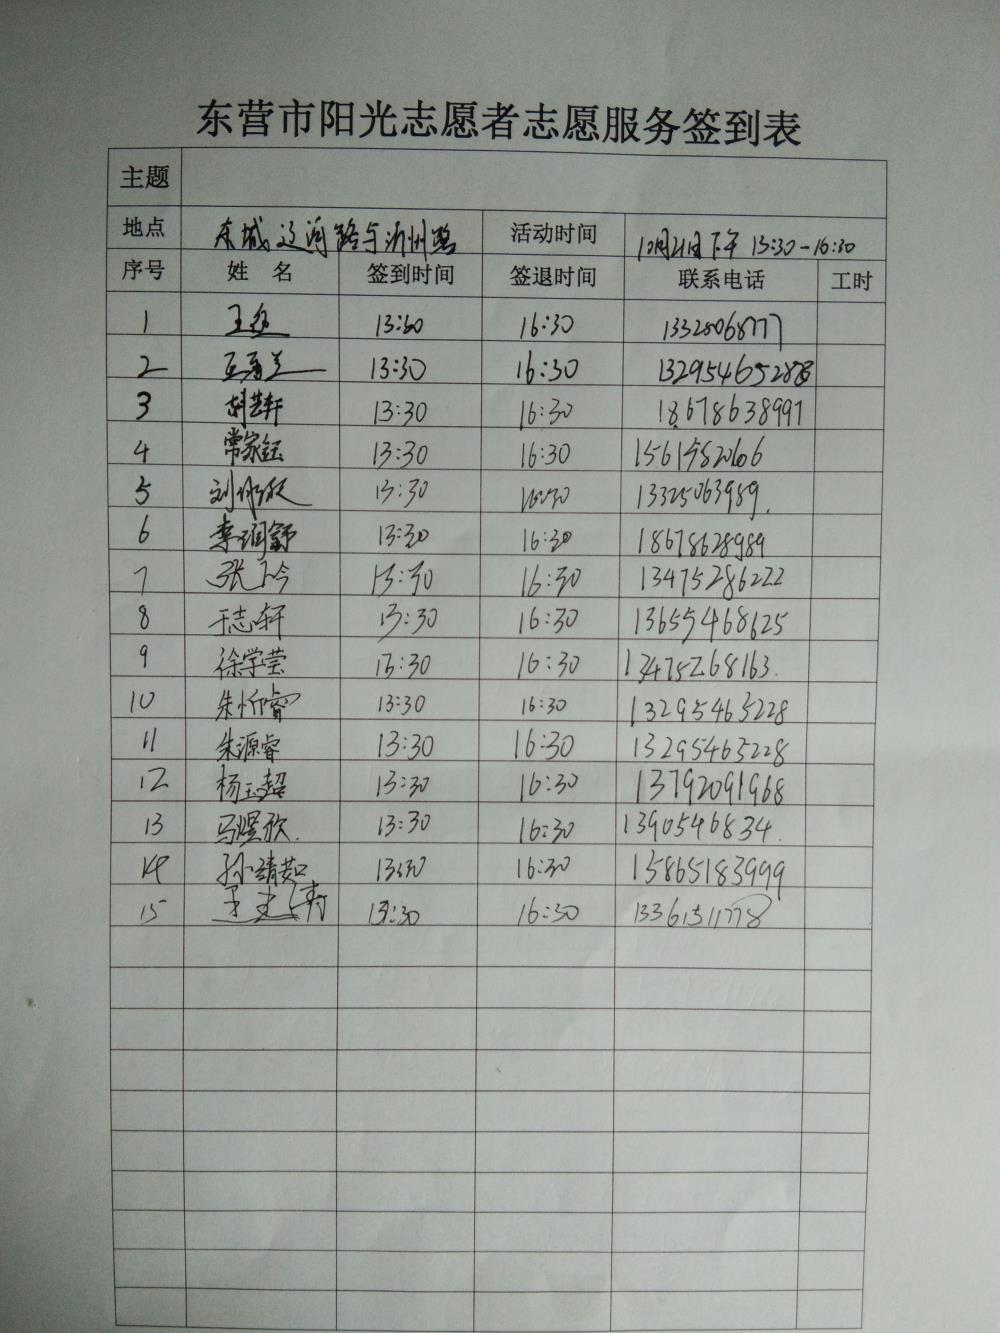 东营市阳光志愿者志愿服务签到表
主题
地点 东城辽河路与沂州路 活动时间 10月21日下午 13:30-16:30
序号 姓名 签到时间 签退时间 联系电话 工时
1 16:30
2 13:30 16:30
3 胡芸轩 13:30 16:30 18678638997
4 常家钰 13:30 16:30
5 13:30 16:30 13325063989
6 李润舒 13:30 16:30 18678628989
7 13:30 16:30 13475286222
8 于志轩 13:30 16:30 13655468625
9 徐学莹 13:30 16:30 13475268163.
10 13:30 16:30 13295463228
11 朱源睿 13:30 16:30 13295463228
12 杨玉超 13:30 16:30 13792091968
13 马煜欣. 13:30 16:30 1390546834.
14 孙靖茹 13:30 16:30 15865183999
15 13:30 16:30